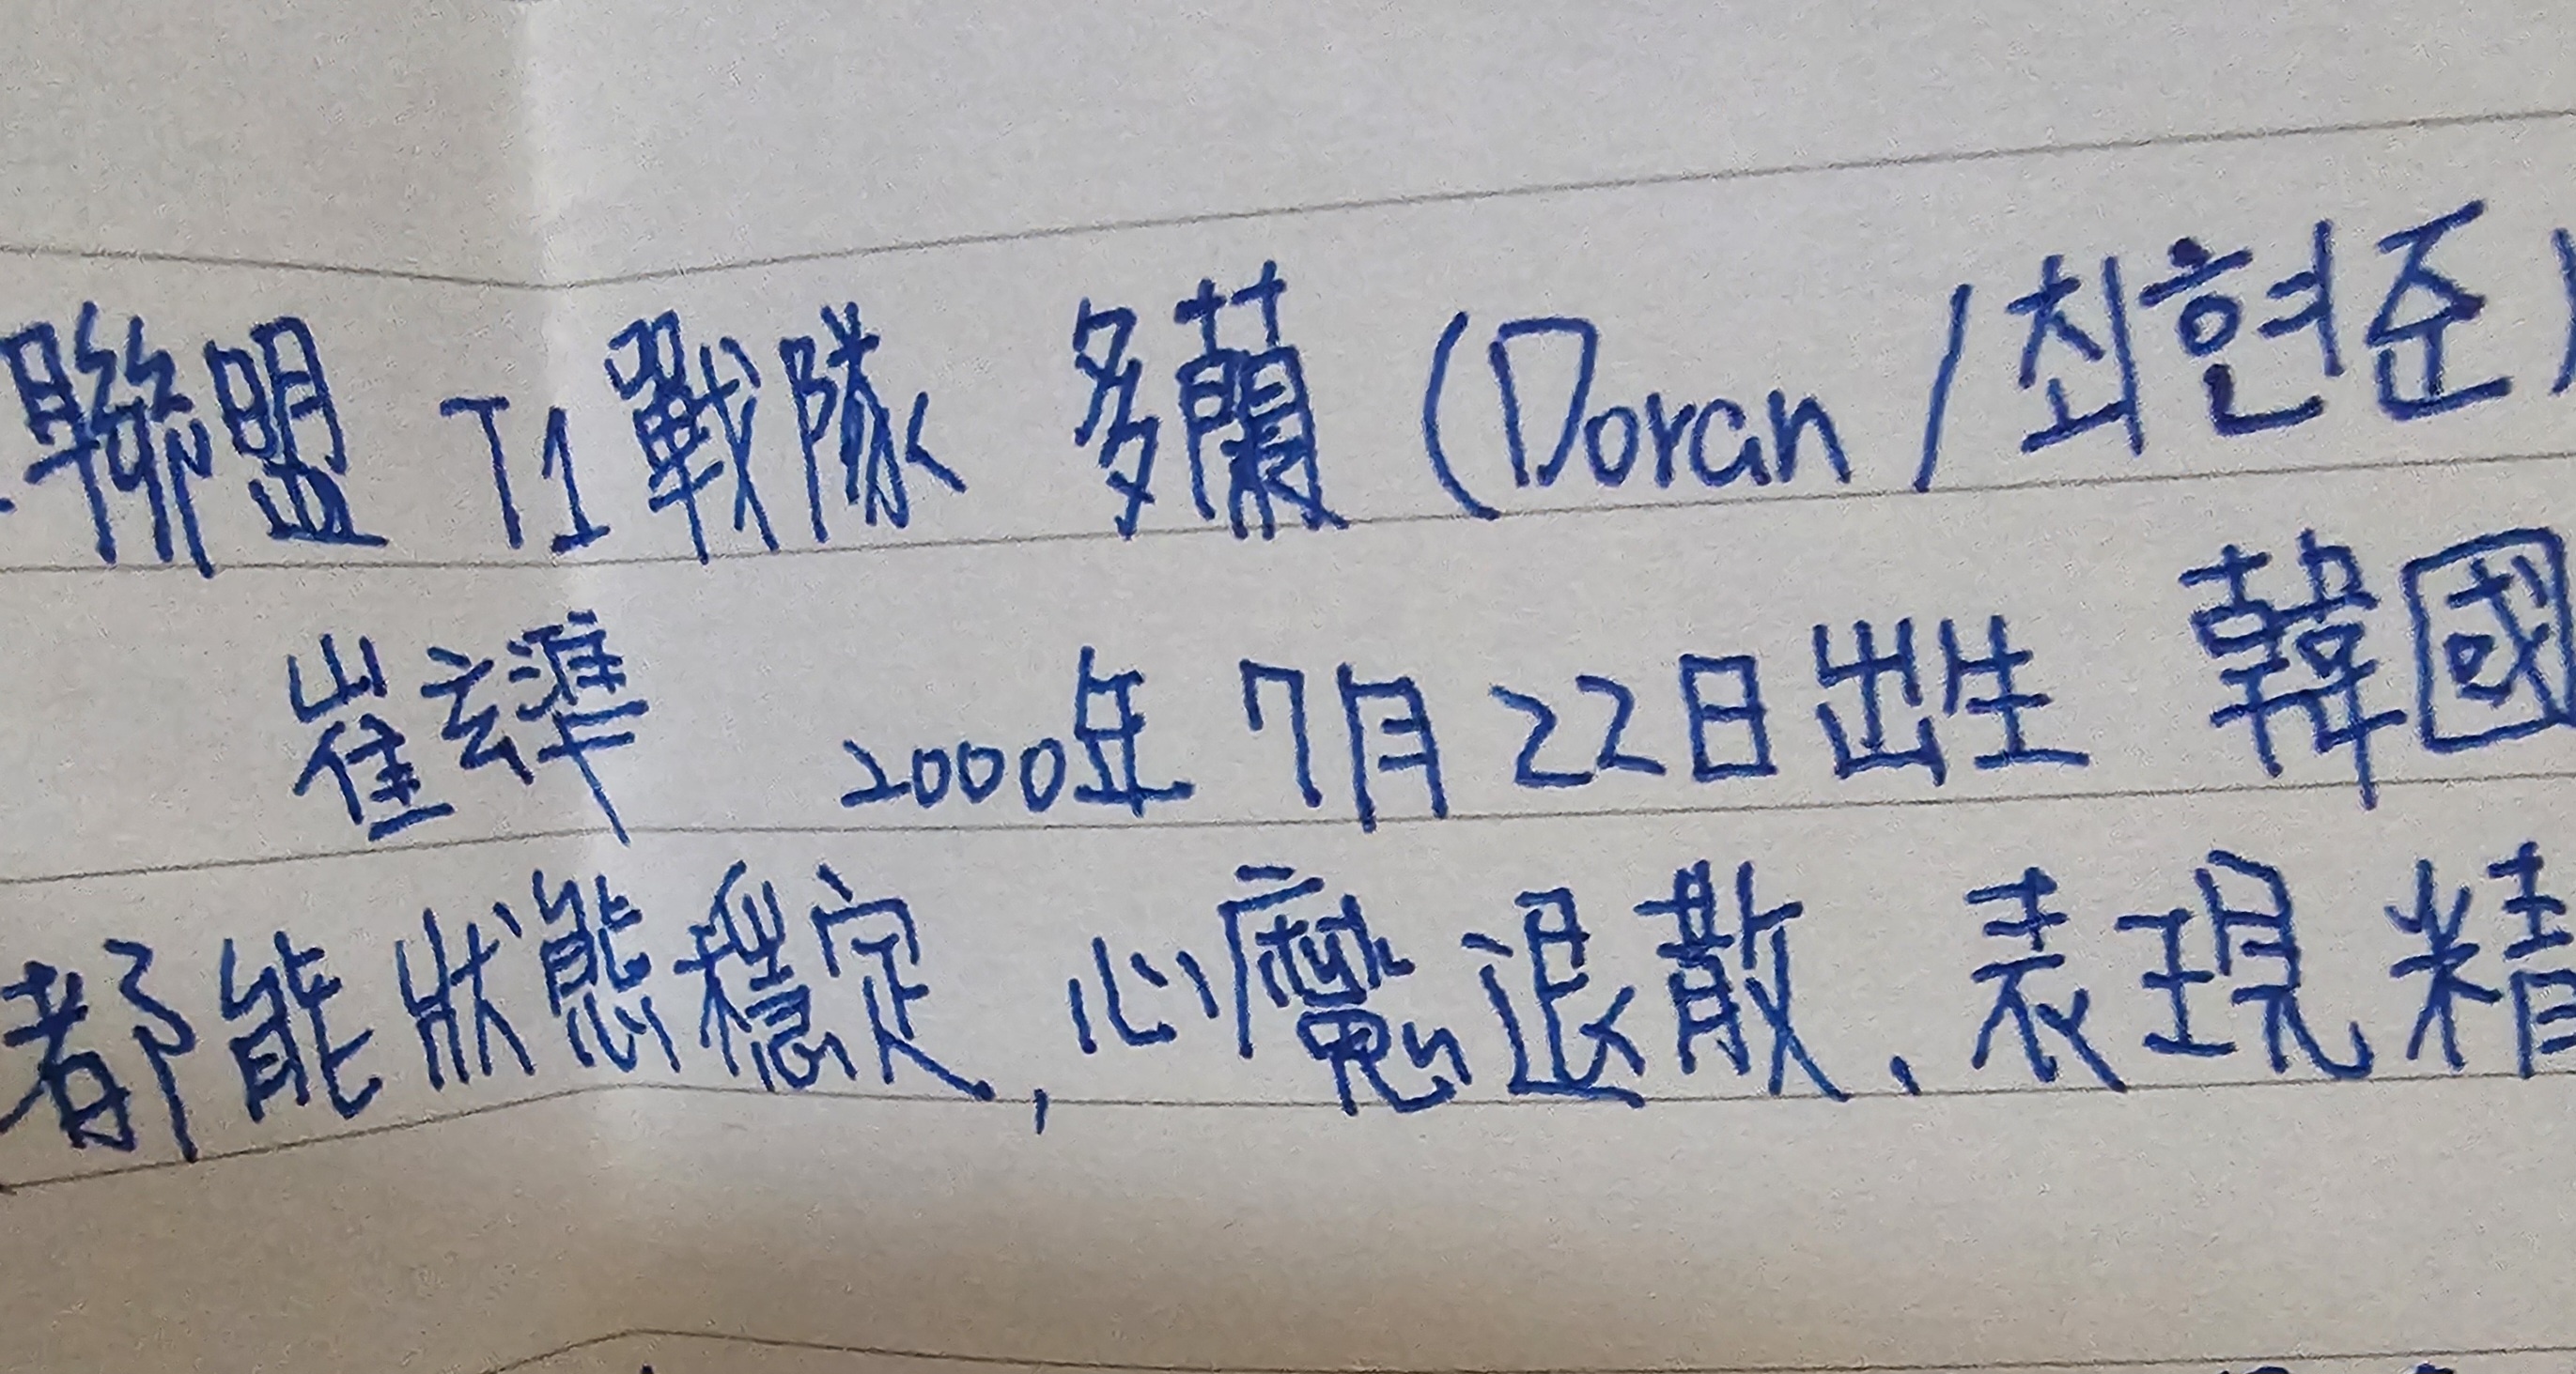 聯盟 T1戰隊 多蘭 (Doran / 최현준)
崔玄準 2000年 7月 22日出生 韓國
都能狀態穩定, 心魔退散、表現精